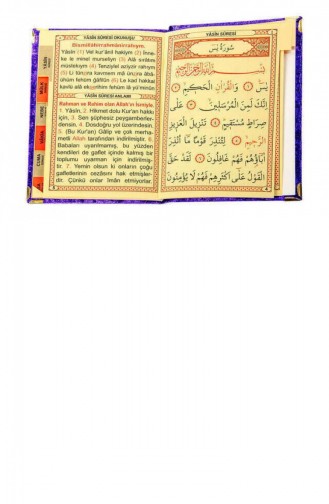 YÂSİN SÛRESİ OKUNUŞU
Bismillâhirrahmânirrahîym.
Yâsîn (1) Vel kur'ânil hakiym (2) İnne-
ke le minel murseliyn (3) Alâ sırâtım
müstekıym (4) Tenziylel aziyzir rahıym
(5) Li tünzira kavmem mâ ünzira âbâ-
ühüm fehüm ğâfilûn (6) Le kad hakkal
kavlü alâ ekserihim fehüm lâ yü'minûn
YÂSİN SÛRESİ ANLAMI
Rahman ve Rahim olan Allah'ın İsmiyle.
1. Yâsîn, 2. Hikmet dolu Kur'an hakkı
için, 3. Sen şüphesiz peygamberler-
densin. 4. Dosdoğru yol üzerindesin.
5. (Bu Kur'an) Gâlip ve çok merha-
metli Allah tarafından indirilmiştir. 6.
Babaları uyarılmamış, bu yüzden
kendileri de gaflet içinde kalmış bir
toplumu uyarman için indirilmiş-
tir. 7. Yemin olsun ki onların çoğu
gafletlerinin cezâsını hak etmişler-
dir. Çünkü onlar İman etmiyorlar.
YÂSİN SÛRESİ
سُورَةُ يٰسٓ
بِسْمِ اللّٰهِ الرَّحْمٰنِ الرَّحِيمِ
يٰسٓ ١ وَالْقُرْاٰنِ الْحَكِيمِ ٢
اِنَّكَ لَمِنَ الْمُرْسَلِينَ ٣ عَلٰى
صِرَاطٍ مُسْتَقِيمٍ ٤ تَنْزِيلَ الْعَزِيزِ
الرَّحِيمِ ٥ لِتُنْذِرَ قَوْمًا مَا اُنْذِرَ
اٰبَاؤُهُمْ فَهُمْ غَافِلُونَ ٦ لَقَدْ حَقَّ
الْقَوْلُ عَلٰى اَكْثَرِهِمْ فَهُمْ لَا يُؤْمِنُونَ